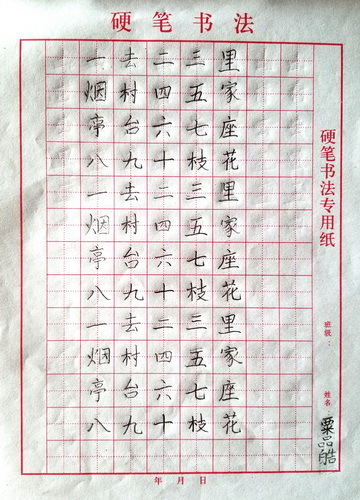 硬笔书法
一去二三里
烟村四五家
亭台六七座
八九十枝花
一去二三里
烟村四五家
亭台六七座
八九十枝花
一去二三里
烟村四五家
亭台六七座
八九十枝花
硬笔书法专用纸
班级:
姓名:
粟品皓
年月日